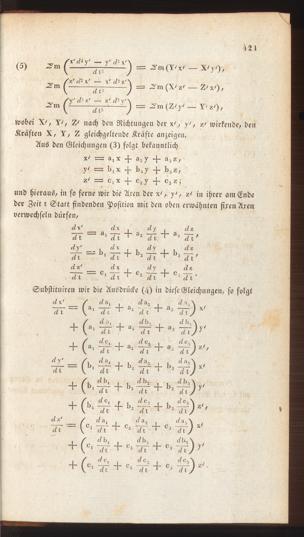 421
(5) Σm (x' d²y' — y' d²x' / dt²) = Σm (Y'x' — X'y'),
Σm (x' d²z' — z' d²x' / dt²) = Σm (X'z' — Z'x'),
Σm (y' d²z' — z' d²y' / dt²) = Σm (Z'y' — Y'z'),
wobei X', Y', Z' nach den Richtungen der x', y', z' wirkende, den
Kräften X, Y, Z gleichgeltende Kräfte anzeigen.
Aus den Gleichungen (3) folgt bekanntlich
x' = a₁x + a₂y + a₃z,
y' = b₁x + b₂y + b₃z,
z' = c₁x + c₂y + c₃z;
und hieraus, in so ferne wir die Axen der x', y', z' in ihrer am Ende
der Zeit t Statt findenden Position mit den oben erwähnten fixen Axen
verwechseln dürfen,
dx'/dt = a₁ dx/dt + a₂ dy/dt + a₃ dz/dt,
dy'/dt = b₁ dx/dt + b₂ dy/dt + b₃ dz/dt,
dz'/dt = c₁ dx/dt + c₂ dy/dt + c₃ dz/dt.
Substituiren wir die Ausdrücke (4) in diese Gleichungen, so folgt
dx'/dt = (a₁ da₁/dt + a₂ da₂/dt + a₃ da₃/dt) x'
+ (a₁ db₁/dt + a₂ db₂/dt + a₃ db₃/dt) y'
+ (a₁ dc₁/dt + a₂ dc₂/dt + a₃ dc₃/dt) z',
dy'/dt = (b₁ da₁/dt + b₂ da₂/dt + b₃ da₃/dt) x'
+ (b₁ db₁/dt + b₂ db₂/dt + b₃ db₃/dt) y'
+ (b₁ dc₁/dt + b₂ dc₂/dt + b₃ dc₃/dt) z',
dz'/dt = (c₁ da₁/dt + c₂ da₂/dt + c₃ da₃/dt) x'
+ (c₁ db₁/dt + c₂ db₂/dt + c₃ db₃/dt) y'
+ (c₁ dc₁/dt + c₂ dc₂/dt + c₃ dc₃/dt) z'.